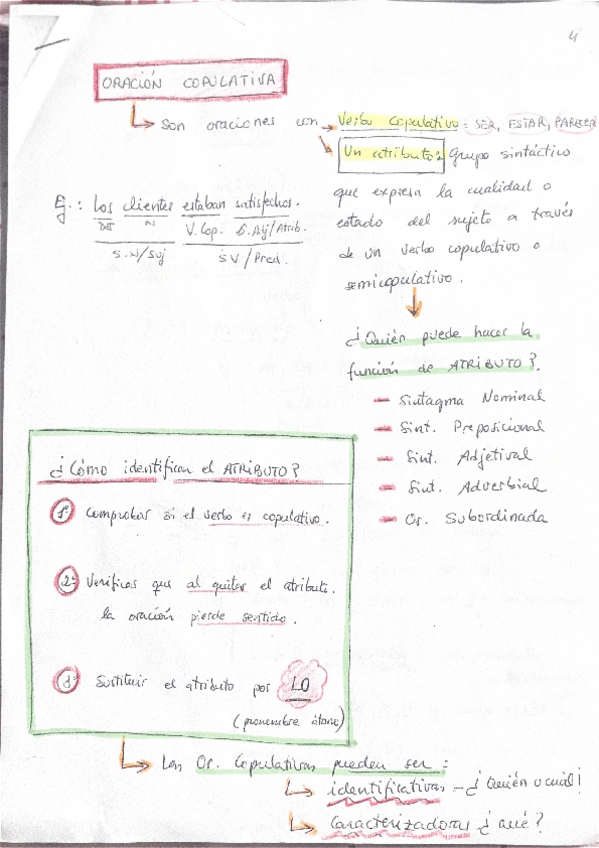 4
ORACIÓN COPULATIVA
Son oraciones con Verbo Copulativo: SER, ESTAR, PARECER
Un atributo: Grupo sintáctico
que expresa la cualidad o
estado del sujeto a través
de un verbo copulativo o
semicopulativo.
Ej.: Los clientes estaban satisfechos.
Det N V. Cop. S. Adj/Atrib.
S.N/Suj SV/Pred.
¿Quién puede hacer la
función de ATRIBUTO?
- Sintagma Nominal
- Sint. Preposicional
- Sint. Adjetival
- Sint. Adverbial
- Or. Subordinada
¿Cómo identificar el ATRIBUTO?
1º Comprobar si el verbo es copulativo.
2º Verificar que al quitar el atributo
la oración pierde sentido.
Sustituir el atributo por LO
(pronombre átono)
Las Or. Copulativas pueden ser:
identificativas - ¿Quién o cuál?
Caracterizadoras ¿Qué?